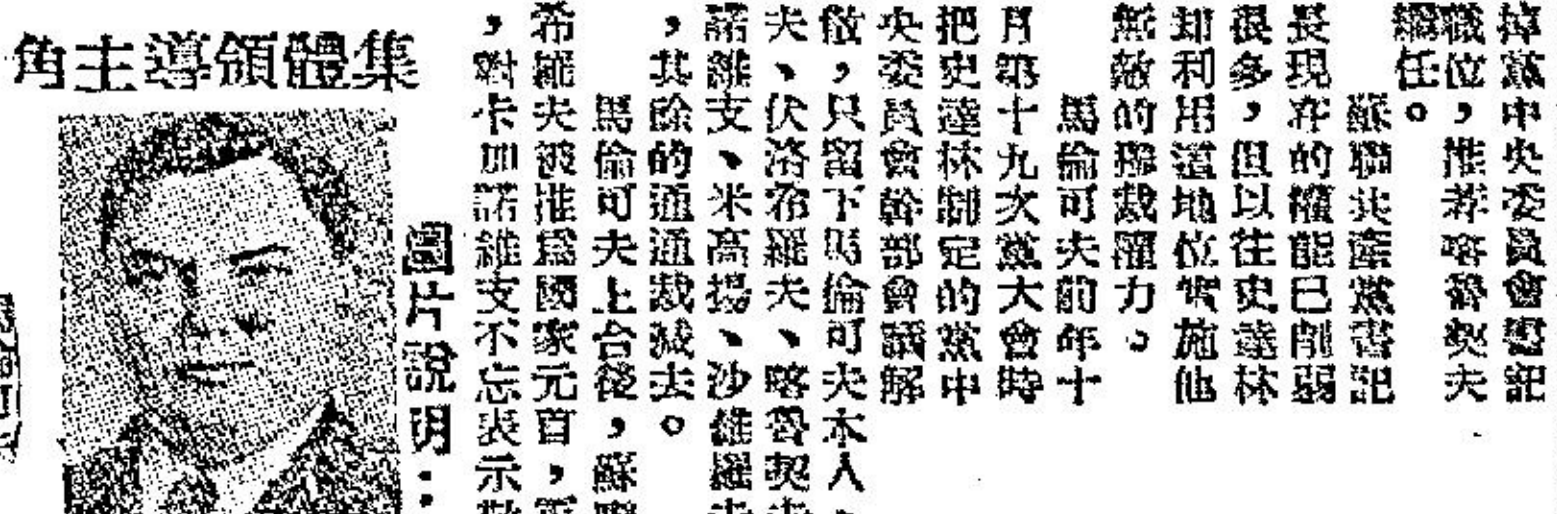 掉黨中央委員會書記
職位，推荐喀魯契夫
繼任。
蘇聯共產黨書記
長現在的權能已削弱
很多，但以往史達林
却利用這地位實施他
無敵的獨裁權力。
馬倫可夫前年十
月第十九次黨大會時
把史達林制定的黨中
央委員會幹部會議解
散，只留下馬倫可夫本人、
夫、伏洛希羅夫、喀魯契夫
諾維支、米高揚、沙維羅夫
，其餘的通通裁減去。
馬倫可夫上台後，蘇聯
希羅夫被推爲國家元首，
，對卡加諾維支不忘表示敬
圖片說明：
集體領導主角